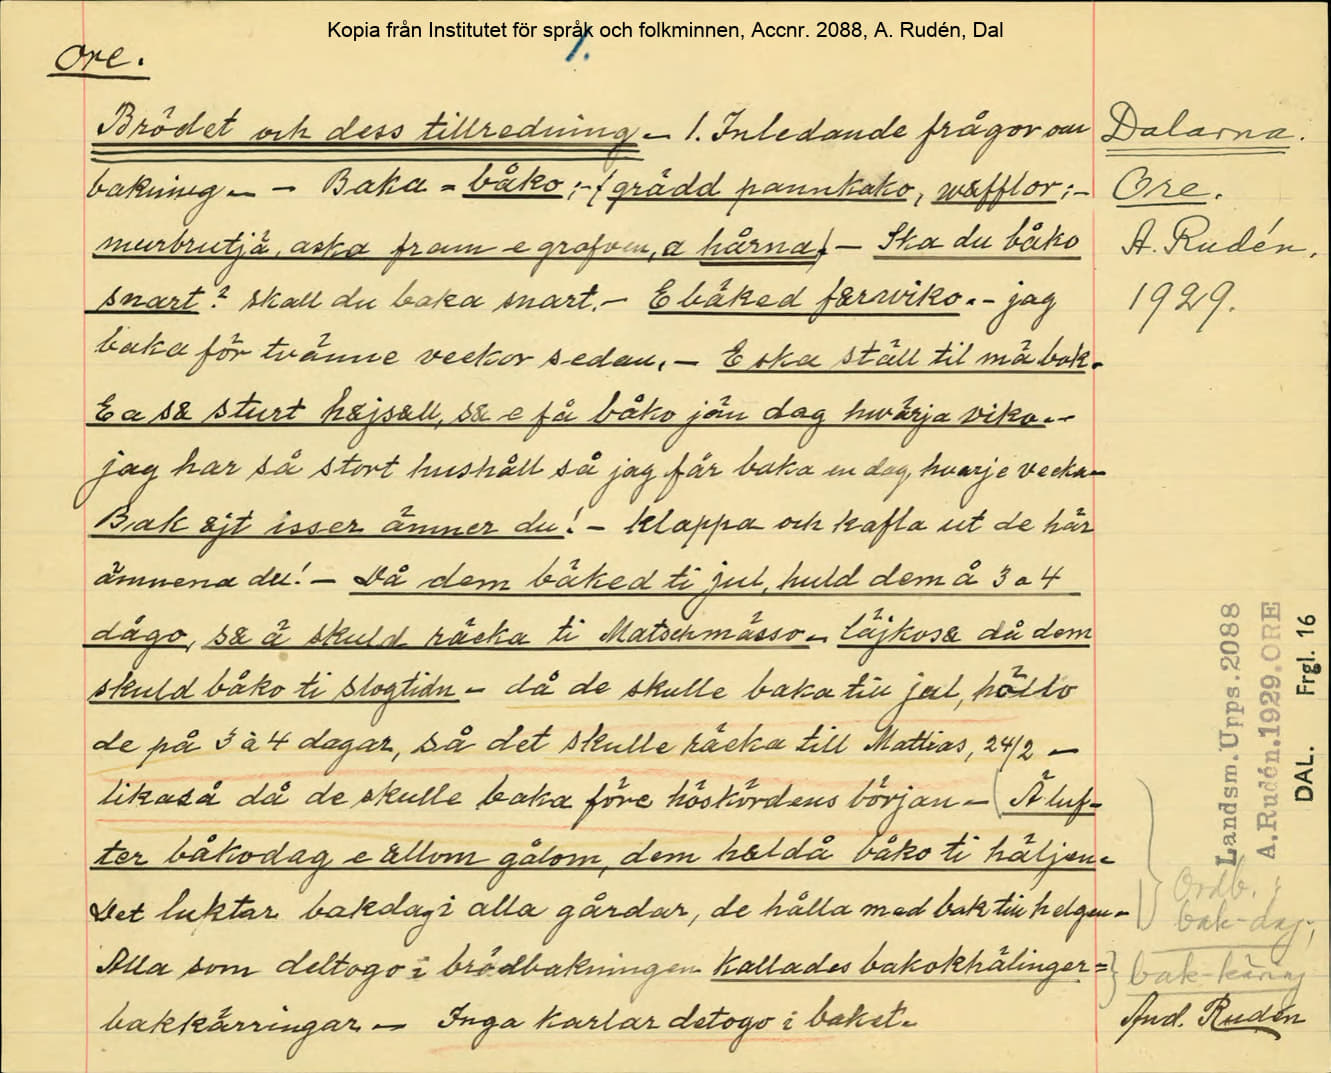 Kopia från Institutet för språk och folkminnen, Accnr. 2088, A. Rudén, Dal
1.
Ore.
Brödet och dess tillredning – 1. Inledande frågor om
bakning – – Baka = båko; – (grädd pannkako, wæfflor; –
murbrutjä, aska fram e grafven, a hårna) – Ska du båko
snart? skall du baka snart. – E båked færwiko. – jag
baka för tvänne veckor sedan. – E ska ställ til mä bak.
E a sæ sturt hæjsæll, sæ e få båko jän dag hwärja viko. –
jag har så stort hushåll så jag får baka en dag, hvarje vecka –
Bak æjt isser ämner du! – Klappa och kafla ut de här
ämnena du! – Då dem båked ti jul, huld dem å 3 a 4
dågo, sæ ä skuld räcka ti Matschmässo – läjkosæ då dem
skuld båko ti slogtidn – då de skulle baka till jul, höllo
de på 3 à 4 dagar, så det skulle räcka till Mattias, 24/2 –
likaså då de skulle baka före höskördens början – (Ä luf-
ter båkodag e ællom gålom, dem hældå båko ti häljen –
Det luktar bakdag i alla gårdar, de hålla med bak till helgen –
Alla som deltogo i brödbakningen kallades bakokhälinger =
bakkärringar – Inga karlar detogo i baket.
Dalarna.
Ore.
A. Rudén,
1929.
Landsm. Upps. 2088
A. Rudén. 1929. ORE
DAL. Frgl. 16
Ordb.
bak-dag,
bak-käring
And. Rudén